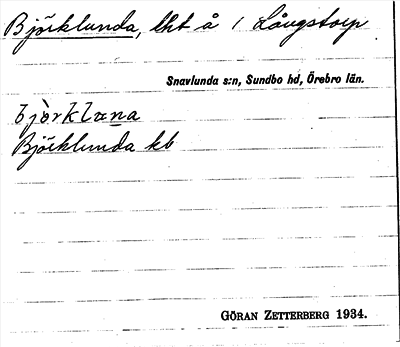 Björklunda, lht å 1 Långstorp
Snavlunda s:n, Sundbo hd, Örebro län.
bjòrklana
Björklunda kb
GÖRAN ZETTERBERG 1934.